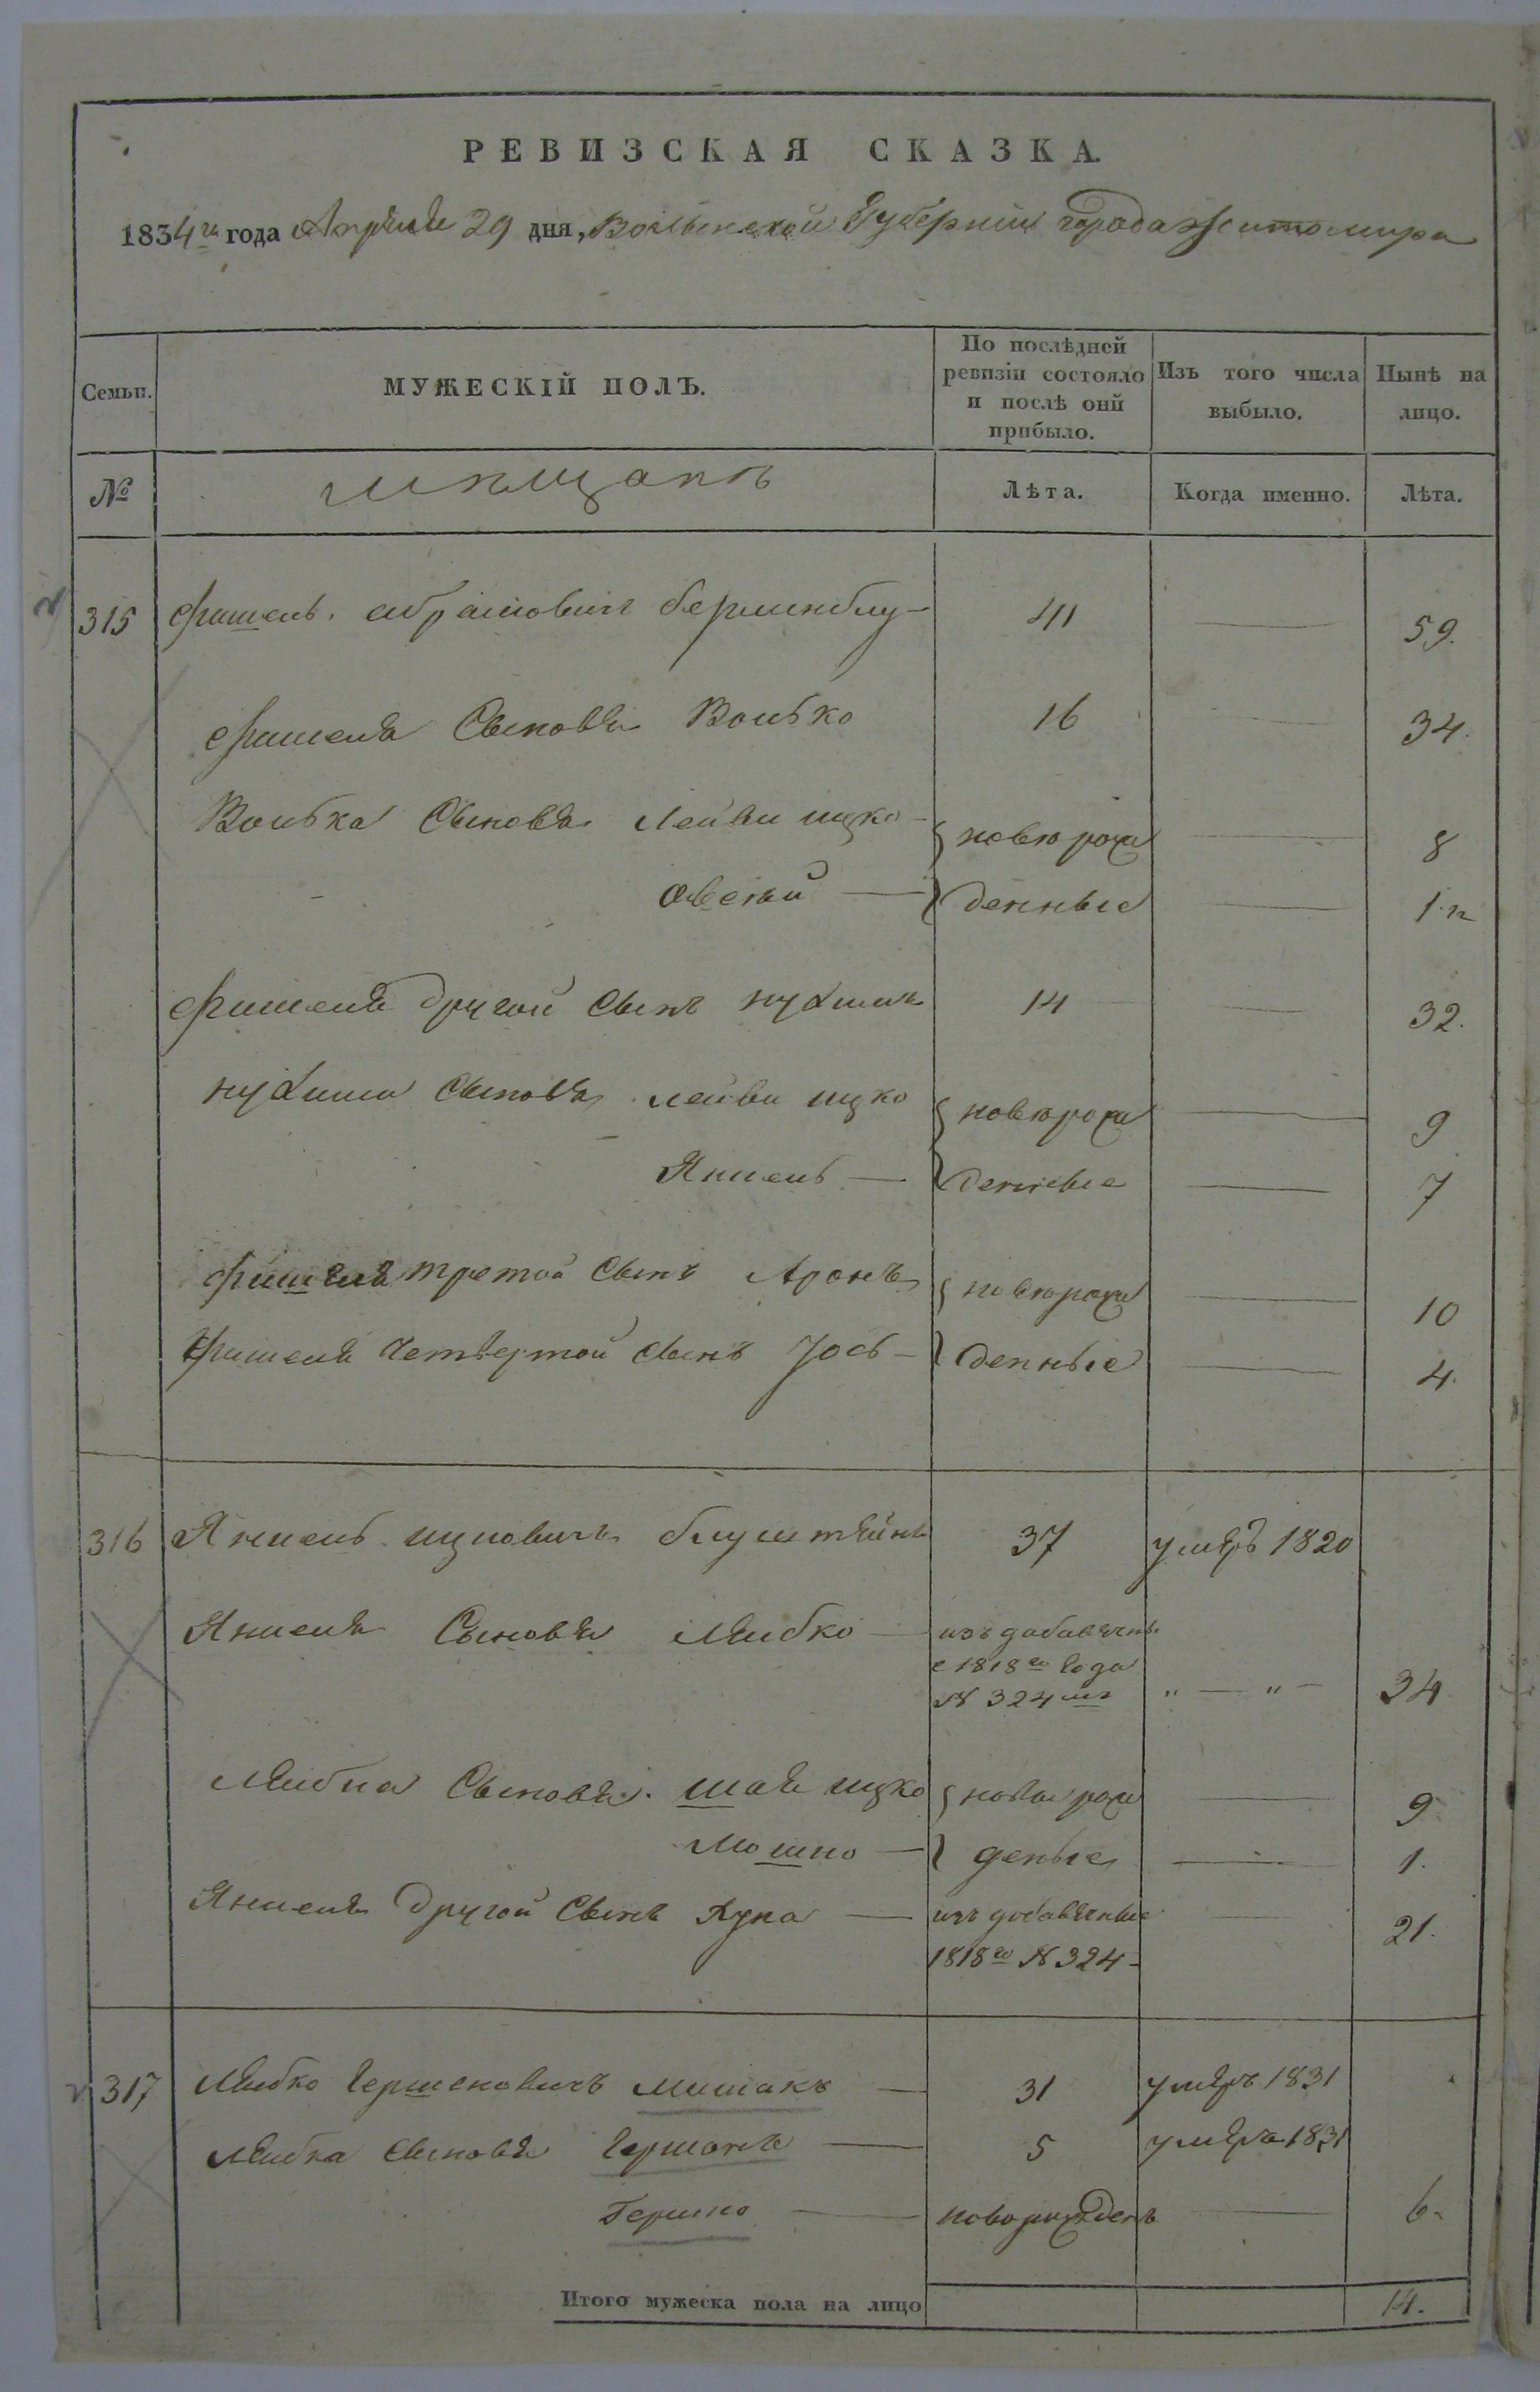 РЕВИЗСКАЯ СКАЗКА.
1834го года Апреля 29 дня, Волынской Губернии города Житомира
Семьи.
МУЖЕСКІЙ ПОЛЪ.
По послѣдней ревизіи состояло и послѣ онй прибыло.
Изъ того числа выбыло.
Нынѣ на лицо.
№
мѣщанъ
Лѣта.
Когда именно.
Лѣта.
315 Фишель Абрамович 41 — 59.
Фишеля Сыновя Волько 16 — 34.
Волька Сыновя Лейви ицко { новорож — 8
Овсѣй — } денные — 1
Фишеля другой Сынъ Нухимъ 14 — 32.
Нухима Сыновя Лейви ицко { новорож — 9
Янкель — } денные — 7
Фишеля третой Сынъ Аронъ { новорож — 10
Фишеля Четвертой Сынъ Іось — } денные — 4.
316 Янкель ицковичъ блуштейнъ 37 умеръ 1820
Янкеля Сыновя Лейбко — изъ добавочн.
с 1818го Года
N 324 " — " — 34
Лейбка Сыновя Шая ицко { новорож — 9
Мошко — } деные — 1.
Янкеля другой Сынъ — изъ добавочные — 21.
1818го N 324 -
317 Лейбко Гершковичъ — 31 умеръ 1831
Лейбка Сыновя Гершонъ — 5 умеръ 1831
Гершко — новорожденъ — 6.
Итого мужеска пола на лицо 14.